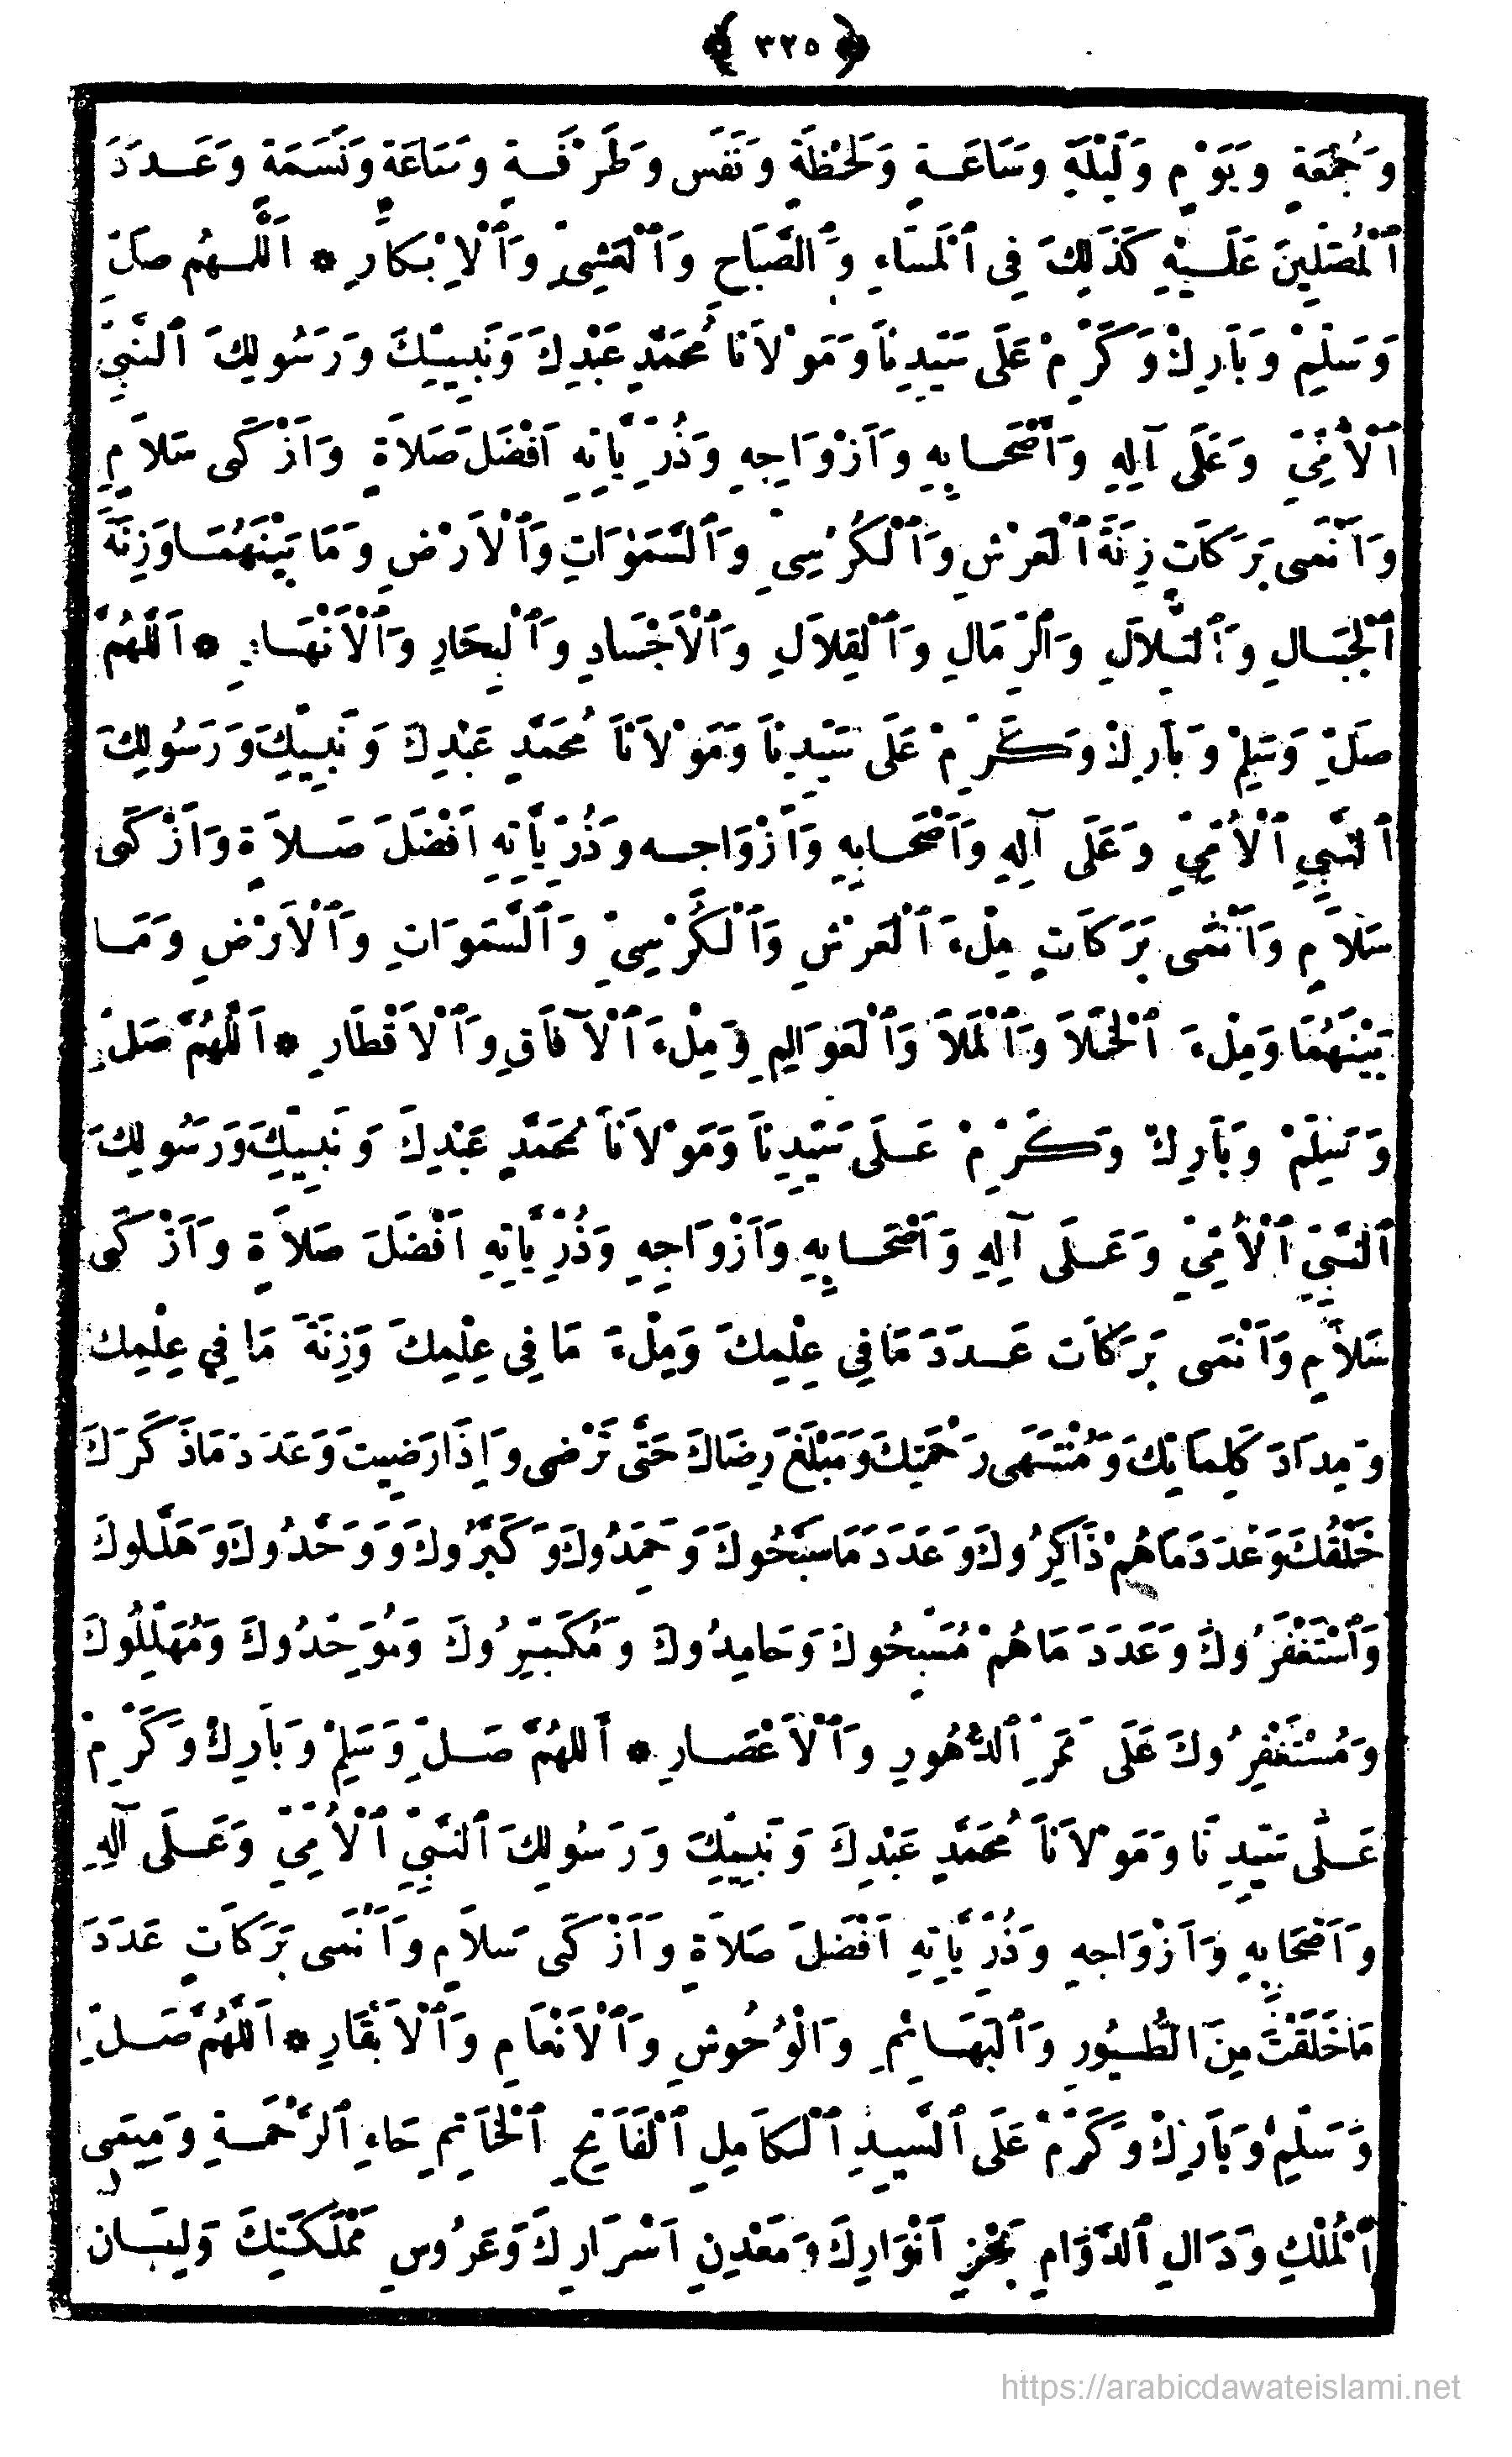 ﴿ ٣٢٥ ﴾
وَجُمْعَةٍ وَيَوْمٍ وَلَيْلَةٍ وَسَاعَةٍ وَلَحْظَةٍ وَنَفَسٍ وَطَرْفَةٍ وَسَاعَةٍ وَنَسَمَةٍ وَعَدَدَ
ٱلْمُصَلِّينَ عَلَيْهِ كَذَلِكَ فِى ٱلْمَسَاءِ وَٱلصَّبَاحِ وَٱلْعَشِىِّ وَٱلْاِبْكَارِ * اَللّٰهُمَّ صَلِّ
وَسَلِّمْ وَبَارِكْ وَكَرِّمْ عَلَى سَيِّدِنَا وَمَوْلَانَا مُحَمَّدٍ عَبْدِكَ وَنَبِيِّكَ وَرَسُولِكَ ٱلنَّبِيِّ
ٱلْاُمِّيِّ وَعَلَى آلِهِ وَاَصْحَابِهِ وَاَزْوَاجِهِ وَذُرِّيَّاتِهِ اَفْضَلَ صَلَاةٍ وَاَزْكَى سَلَامٍ
وَاَنْمَى بَرَكَاتٍ زِنَةَ ٱلْعَرْشِ وَٱلْكُرْسِىِّ وَٱلسَّمٰوَاتِ وَٱلْاَرْضِ وَمَا بَيْنَهُمَا وَزِنَةَ
ٱلْجِبَالِ وَٱلتِّلَالِ وَٱلرِّمَالِ وَٱلْقِلَالِ وَٱلْاَجْسَادِ وَٱلْبِحَارِ وَٱلْاَنْهَارِ * اَللّٰهُمَّ
صَلِّ وَسَلِّمْ وَبَارِكْ وَكَرِّمْ عَلَى سَيِّدِنَا وَمَوْلَانَا مُحَمَّدٍ عَبْدِكَ وَنَبِيِّكَ وَرَسُولِكَ
ٱلنَّبِيِّ ٱلْاُمِّيِّ وَعَلَى آلِهِ وَاَصْحَابِهِ وَاَزْوَاجِهِ وَذُرِّيَّاتِهِ اَفْضَلَ صَلَاةٍ وَاَزْكَى
سَلَامٍ وَاَنْمَى بَرَكَاتٍ مِلْءَ ٱلْعَرْشِ وَٱلْكُرْسِىِّ وَٱلسَّمَوَاتِ وَٱلْاَرْضِ وَمَا
بَيْنَهُمَا وَمِلْءَ ٱلْخَلَا وَٱلْمَلَا وَٱلْعَوَالِمِ وَمِلْءَ ٱلْآفَاقِ وَٱلْاَقْطَارِ * اَللّٰهُمَّ صَلِّ
وَسَلِّمْ وَبَارِكْ وَكَرِّمْ عَلَى سَيِّدِنَا وَمَوْلَانَا مُحَمَّدٍ عَبْدِكَ وَنَبِيِّكَ وَرَسُولِكَ
ٱلنَّبِيِّ ٱلْاُمِّيِّ وَعَلَى آلِهِ وَاَصْحَابِهِ وَاَزْوَاجِهِ وَذُرِّيَّاتِهِ اَفْضَلَ صَلَاةٍ وَاَزْكَى
سَلَامٍ وَاَنْمَى بَرَكَاتٍ عَدَدَ مَا فِى عِلْمِكَ وَمِلْءَ مَا فِى عِلْمِكَ وَزِنَةَ مَا فِي عِلْمِكَ
وَمِدَادَ كَلِمَاتِكَ وَمُنْتَهَى رَحْمَتِكَ وَمَبْلَغَ رِضَاكَ حَتَّى تَرْضَى وَاِذَا رَضِيتَ وَعَدَدَ مَا ذَكَرَكَ
خَلْقُكَ وَعَدَدَ مَا هُمْ ذَاكِرُوكَ وَعَدَدَ مَا سَبَّحُوكَ وَحَمِدُوكَ وَكَبَّرُوكَ وَوَحَّدُوكَ وَهَلَّلُوكَ
وَٱسْتَغْفَرُوكَ وَعَدَدَ مَا هُمْ مُسَبِّحُوكَ وَحَامِدُوكَ وَمُكَبِّرُوكَ وَمُوَحِّدُوكَ وَمُهَلِّلُوكَ
وَمُسْتَغْفِرُوكَ عَلَى مَمَرِّ ٱلدُّهُورِ وَٱلْاَعْصَارِ * اَللّٰهُمَّ صَلِّ وَسَلِّمْ وَبَارِكْ وَكَرِّمْ
عَلَى سَيِّدِنَا وَمَوْلَانَا مُحَمَّدٍ عَبْدِكَ وَنَبِيِّكَ وَرَسُولِكَ ٱلنَّبِيِّ ٱلْاُمِّيِّ وَعَلَى آلِهِ
وَاَصْحَابِهِ وَاَزْوَاجِهِ وَذُرِّيَّاتِهِ اَفْضَلَ صَلَاةٍ وَاَزْكَى سَلَامٍ وَاَنْمَى بَرَكَاتٍ عَدَدَ
مَا خَلَقْتَ مِنَ الطُّيُورِ وَٱلْبَهَائِمِ وَالْوُحُوشِ وَٱلْاَنْعَامِ وَٱلْاَبْقَارِ * اَللّٰهُمَّ صَلِّ
وَسَلِّمْ وَبَارِكْ وَكَرِّمْ عَلَى ٱلسَّيِّدِ ٱلْكَامِلِ ٱلْفَاتِحِ ٱلْخَاتِمِ حَاءِ ٱلرَّحْمَةِ وَمِيمَىِ
ٱلْمُلْكِ وَدَالِ ٱلدَّوَامِ بَحْرِ اَنْوَارِكَ وَمَعْدِنِ اَسْرَارِكَ وَعَرُوسِ مَمْلَكَتِكَ وَلِسَانِ
https://arabicdawateislami.net